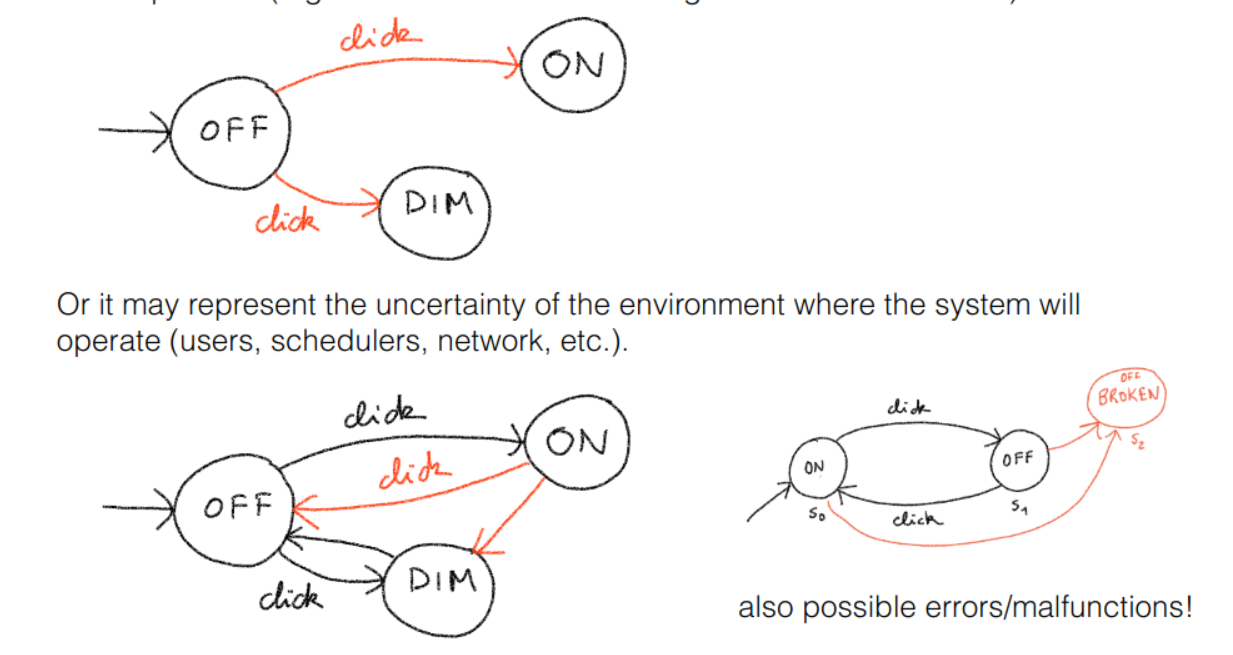 click
ON
OFF
DIM
click
Or it may represent the uncertainty of the environment where the system will
operate (users, schedulers, network, etc.).
click
ON
click
OFF
DIM
click
OFF
BROKEN
S₂
click
ON
OFF
S₀
S₁
click
also possible errors/malfunctions!